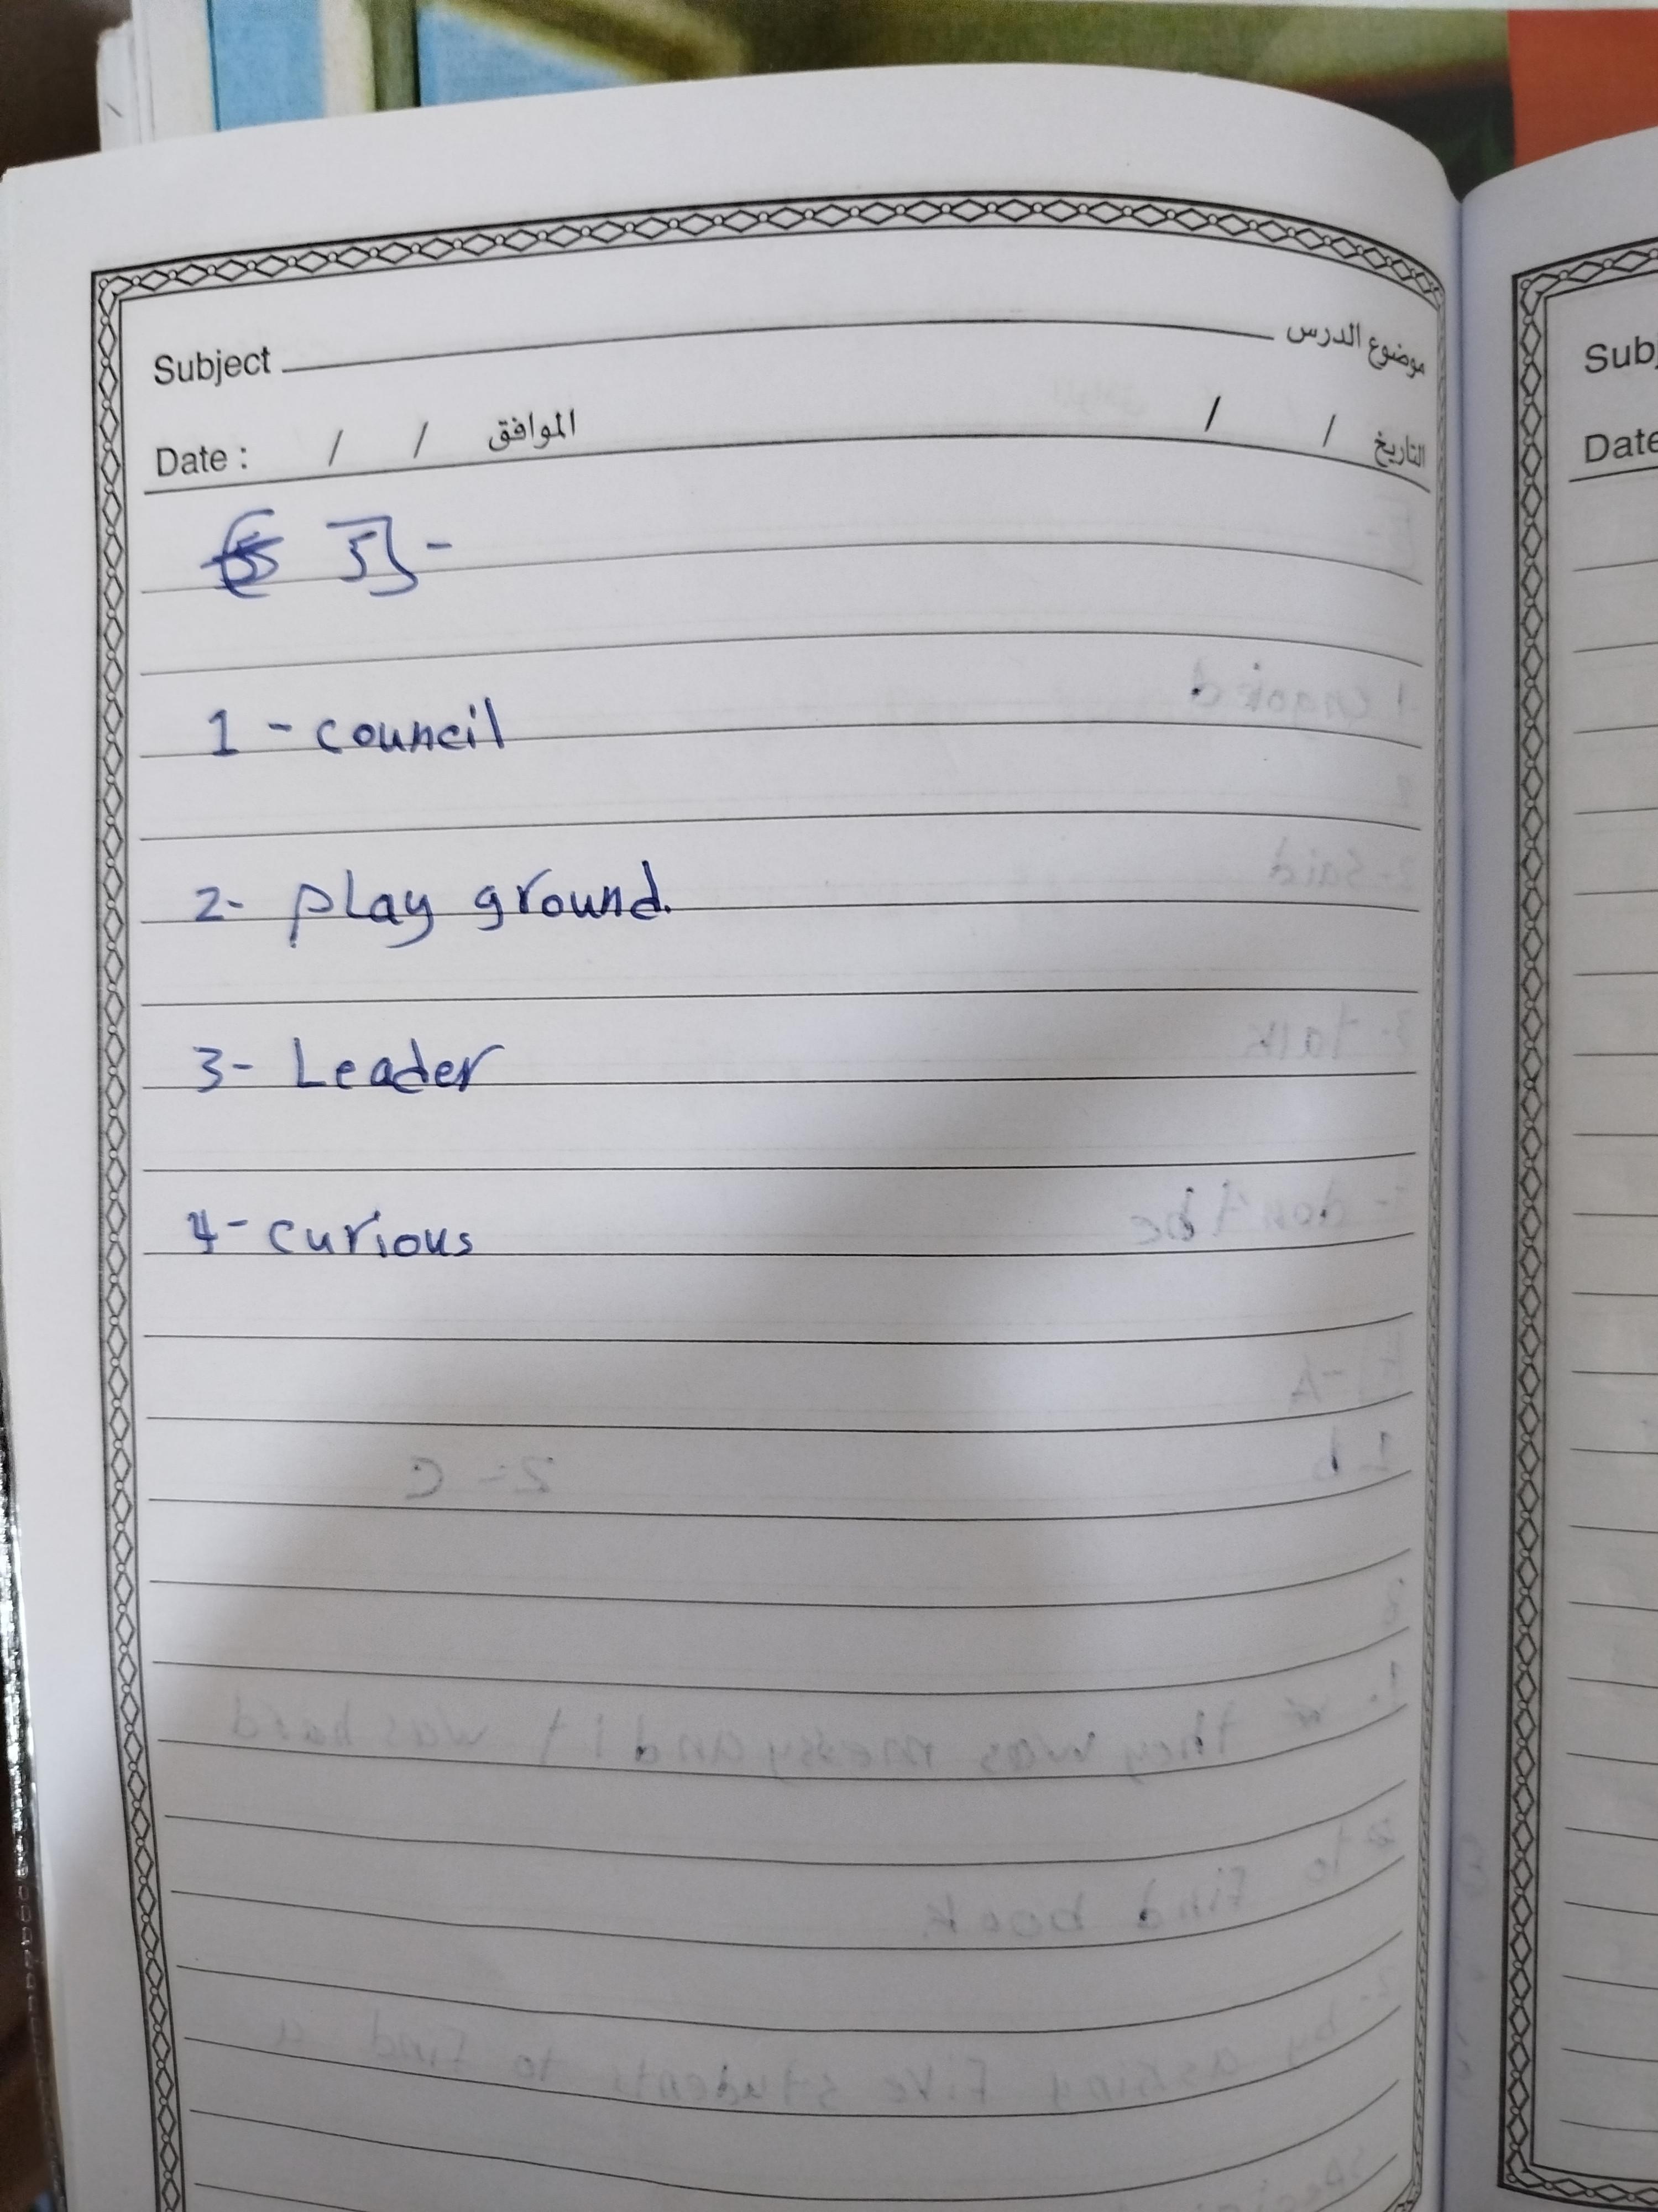 Subject موضوع الدرس
Date : / / الموافق / / التاريخ
5] -
1 - council
2- play ground.
3- Leader
4- curious
Sub
Date